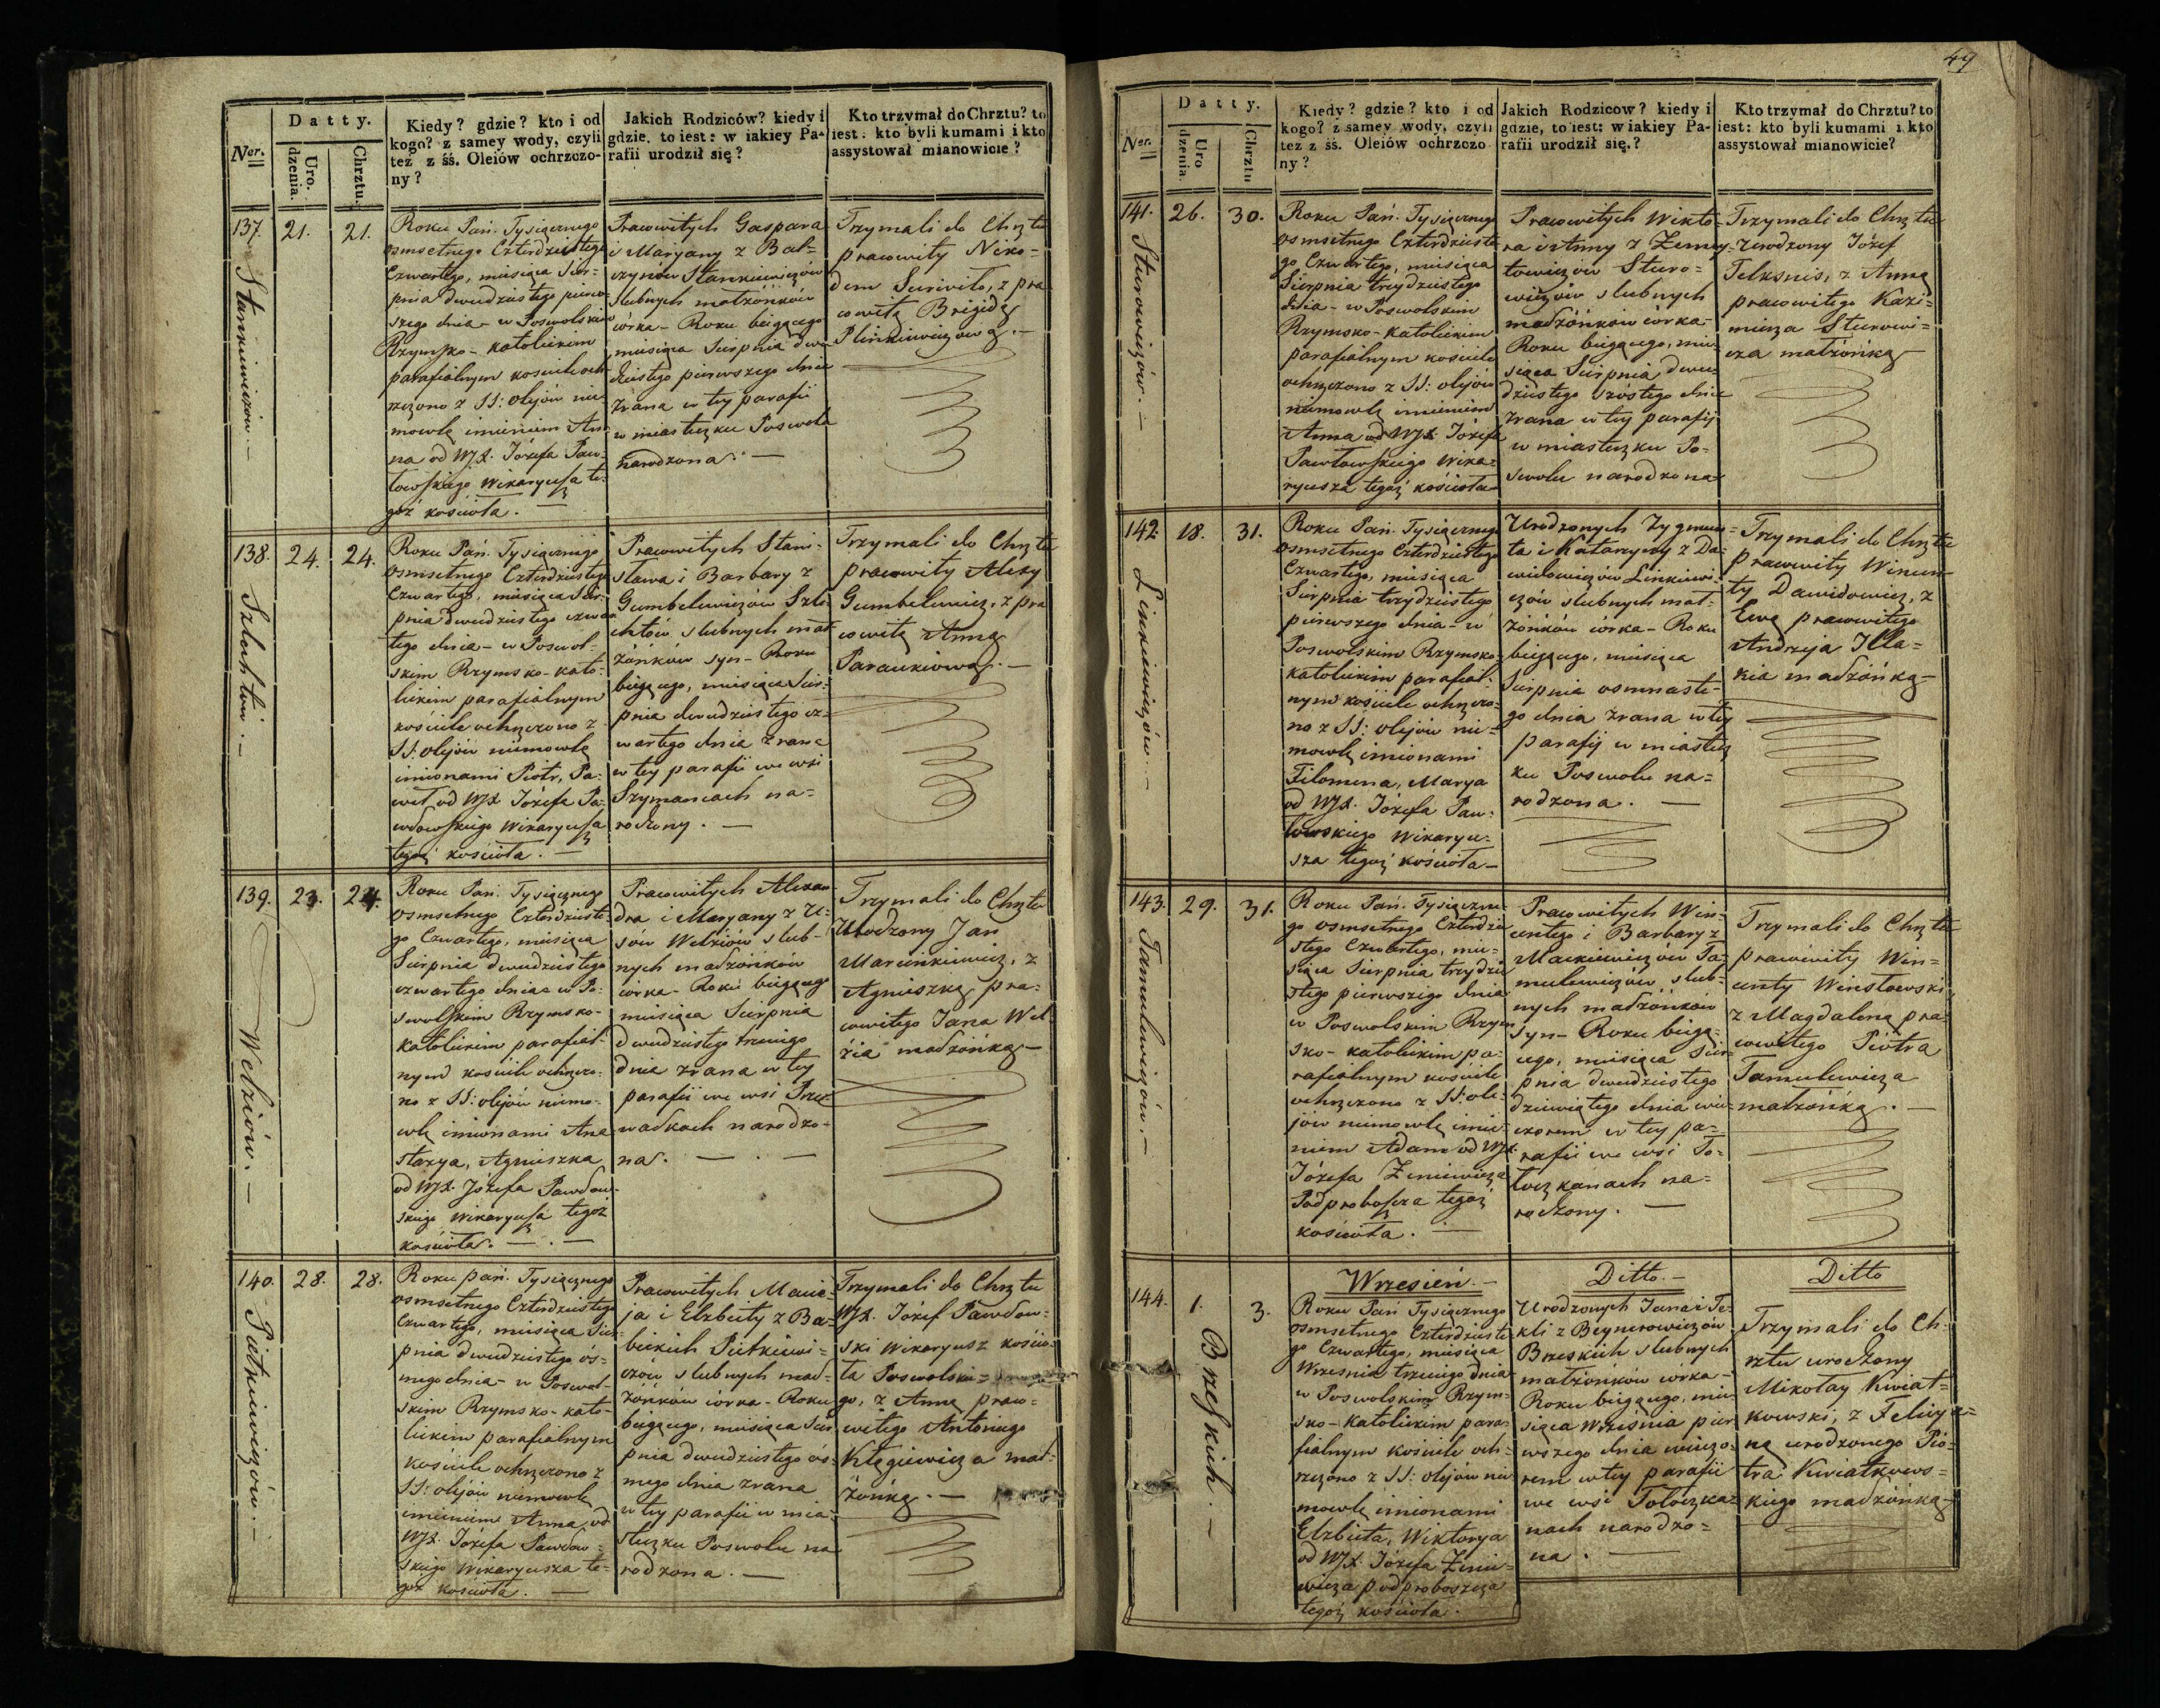 Ner.
Datty.
Uro.
dzenia.
Chrztu.
Kiedy? gdzie? kto i od
kogo? z samey wody, czyli
też z śś. Oleiów ochrzczo-
ny?
Jakich Rodziców? kiedy i
gdzie, to iest: w iakiey Pa-
rafii urodził się?
Kto trzymał do Chrztu? to
iest: kto byli kumami i kto
assystował mianowicie?
137.
Stankiewiczów. —
21.
21.
Roku Pań. Tysiącznego
osmsetnego Czterdziestego
Czwartego, miesiąca Sier=
pnia dwudziestego pierw
szego dnia – w Poswolskim
Rzymsko-katolickim
parafialnym kościele och
rzczono z SS: olejów nie
mowlę imieniem An
na od WJX. Józefa Paw=
łowskiego Wikaryusza te=
góż kościoła. —
Pracowitych Gaspara
i Maryany z Bał=
czynów Stankiewiczów
slubnych małżonków
córka – Roku biegącego
miesiąca Sierpnia dwu
dziestego pierwszego dnia
zrana w tey parafii
w miasteczku Poswolu
narodzona. —
Trzymali do Chrztu
pracowity Niko=
dem Surwiło, z pra
cowitą Brigidą
Plinkiewiczową. —
138.
Szlachtów. —
24.
24.
Roku Pań. Tysiącznego
osmsetnego Czterdziestego
Czwartego, miesiąca Sier
pnia dwudziestego czwar
tego dnia – w Poswol=
skim Rzymsko-kato=
lickim parafialnym
kościele ochrzczono z
SS: olejów niemowlę
imionami Piotr, Pa=
weł od WJX. Józefa Pa=
włowskiego Wikaryusza
tegoż kościoła. —
Pracowitych Stani=
sława i Barbary z
Gumbelewiczów Szla
chtów slubnych mał
żonków syn – Roku
biegącego, miesiąca Sier=
pnia dwudziestego cz=
wartego dnia zrana
w tey parafii we wsi
Szymancach na=
rodzony. —
Trzymali do Chrztu
pracowity Alexy
Gumbelewicz, z pra
cowitą Anną
Paraukiową. —
139.
Welziów. —
23.
24.
Roku Pań. Tysiącznego
osmsetnego Czterdzieste=
go Czwartego, miesiąca
Sierpnia dwudziestego
czwartego dnia – w Po=
swolskim Rzymsko-
katolickim parafial=
nym kościele ochrzczo=
no z SS: olejów niemo=
wlę imionami Ana
stazya, Agnieszka
od WJX. Józefa Pawłow=
skiego Wikaryusza tegoż
kościoła. — . —
Pracowitych Alexan
dra i Maryany z U=
sów Welziów slub=
nych małżonków
córka – Roku biegącego
miesiąca Sierpnia
dwudziestego trzeciego
dnia zrana w tey
parafii we wsi Prze
wadkach narodzo=
na. — . —
Trzymali do Chrztu
Urodzony Jan
Marcinkiewicz, z
Agnieszką pra=
cowitego Jana Wel
zia małżonką —
140.
Pietkiewiczów. —
28.
28.
Roku pań. Tysiącznego
osmsetnego Czterdziestego
Czwartego, miesiąca Sier
pnia dwudziestego ós=
mego dnia – w Poswol=
skim Rzymsko-kato=
lickim parafialnym
kościele ochrzczono z
SS: olejów niemowlę
imieniem Anna od
WJX. Józefa Pawłow=
skiego Wikaryusza te=
goż kościoła. —
Pracowitych Macie=
ja i Elżbiety z Ba=
bickich Pietkiewi=
czów slubnych mał=
żonków córka – Roku
biegącego, miesiąca Sier
pnia dwudziestego ós=
mego dnia zrana
w tey parafii w mia
steczku Poswolu na
rodzona. —
Trzymali do Chrztu
WJX. Józef Pawłow=
ski Wikaryusz kościo=
ła Poswolskie=
go, z Anną praco=
witego Antoniego
małżonką. —
49
Ner.
Datty.
Uro
dzenia.
Chrztu
Kiedy? gdzie? kto i od
kogo? z samey wody, czyli
też z śś. Oleiów ochrzczo
ny?
Jakich Rodziców? kiedy i
gdzie, to iest: w iakiey Pa-
rafii urodził się.?
Kto trzymał do Chrztu? to
iest: kto byli kumami i kto
assystował mianowicie?
141.
Sturowiczów. —
26.
30.
Roku Pań. Tysiącznego
osmsetnego Czterdzieste
go Czwartego, miesiąca
Sierpnia trzydziestego
dnia – w Poswolskim
Rzymsko-katolickim
parafialnym kościele
ochrzczono z SS: olejów
niemowlę imieniem
Anna od WJX. Józefa
Pawłowskiego Wika=
ryusza tegoż kościoła
Pracowitych Wikto=
ra i Anny z Ziemy
towiczów Sturo=
wiczów slubnych
małżonków córka –
Roku biegącego, mie
siąca Sierpnia dwu
dziestego szóstego dnia
zrana w tey parafij
w miasteczku Po=
swolu narodzona
Trzymali do Chrztu
Urodzony Józef
Telksnis, z Anną
pracowitego Kazi=
mierza Sturowi=
cza małżonką —
142.
Linkiewiczów. —
18.
31.
Roku Pań. Tysiącznego
osmsetnego Czterdziestego
Czwartego, miesiąca
Sierpnia trzydziestego
pierwszego dnia – w
Poswolskim Rzymsko
katolickim parafial=
nym kościele ochrzczo=
no z SS: olejów nie=
mowlę imionami
Filomena, Marya
od WJX. Józefa Paw=
łowskiego Wikaryu=
sza tegoż kościoła —
Urodzonych Zygmun=
ta i Katarzyny z Da=
widowiczów Linkiewi=
czów slubnych mał=
żonków córka – Roku
biegącego, miesiąca
Sierpnia osmnaste=
go dnia zrana w tey
parafij w miastecz
ku Poswolu na=
rodzona. —
Trzymali do Chrztu
pracowity Wincen
ty Dawidowicz, z
Ewą pracowitego
Andrzeja Illa=
kia małżonką —
143.
Tamulewiczów. —
29.
31.
Roku Pań. Tysiączne=
go osmsetnego Czterdzie
stego Czwartego, mie=
siąca Sierpnia trzydzie
stego pierwszego dnia
w Poswolskim Rzym
sko-katolickim pa=
rafialnym kościele
ochrzczono z SS: ole=
jów niemowlę imie=
niem Adam od WJX.
Józefa Zieniewicza
Podproboszcza tegoż
kościoła. —
Pracowitych Win=
centego i Barbary z
Mackiewiczów Ta=
mulewiczów slub=
nych małżonków
syn – Roku biegą=
cego, miesiąca Sier
pnia dwudziestego
dziewiątego dnia wie=
czorem w tey pa=
rafii we wsi To=
łoczkanach na=
rodzony. —
Trzymali do Chrztu
pracowity Win=
centy Winsłowski,
z Magdaleną pra=
cowitego Piotra
Tamulewicza
małżonką. —
144.
Brzeskich. —
1.
3.
Wrzesień. —
Roku Pań Tysiącznego
osmsetnego Czterdzieste
go Czwartego, miesiąca
Wrzesnia trzeciego dnia
w Poswolskim Rzym=
sko-katolickim para
fialnym kościele och=
rzczono z SS: olejów nie
mowlę imionami
Elżbieta, Wiktorya
od WJX. Józefa Zienie=
wicza podproboszcza
tegoż kościoła.
Ditto. —
Urodzonych Jana i Te=
kli z Beynerowiczów
Brzeskich slubnych
małżonków córka –
Roku biegącego, mie
siąca Września pier
wszego dnia wieczo=
rem w tey parafii
we wsi Tołoczka=
nach narodzo=
na. —
Ditto
Trzymali do Ch=
rztu urodzony
Mikołay Kwiat=
kowski, z Felicya=
ną urodzonego Pio=
tra Kwiatkows=
kiego małżonką